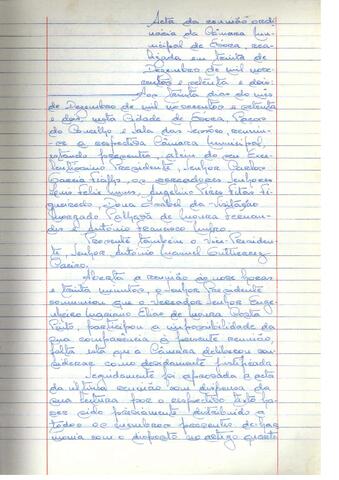 Acta da reunião ordi-
nária da Câmara Mu-
nicipal de Évora, rea-
lizada em trinta de
Dezembro de mil nove-
centos e setenta e dois.
Aos trinta dias do mês
de Dezembro de mil novecentos e setenta
e dois, nesta Cidade de Évora, Paços
do Concelho e Sala das Sessões, reuniu-
se a respectiva Câmara Municipal,
estando presentes, além do seu Exce-
lentíssimo Presidente, Senhor
os vereadores Senhores
Angelino Pires
Dona Isabel da Visitação
Fernan-
des e António Francisco
Presente também o Vice-Presiden-
te, Senhor António Manuel
Aberta a reunião às nove horas
e trinta minutos, o Senhor Presidente
comunicou que o Vereador Senhor Enge-
nheiro Mariano Elias de Moura Costa
Pinto, participou a impossibilidade da
sua comparência à presente reunião,
falta esta que a Câmara deliberou con-
siderar como devidamente justificada.
Seguidamente foi aprovada a acta
da última reunião com dispensa da
sua leitura por o respectivo texto ha-
ver sido previamente distribuído a
todos os membros presentes de har-
monia com o disposto no artigo quarto